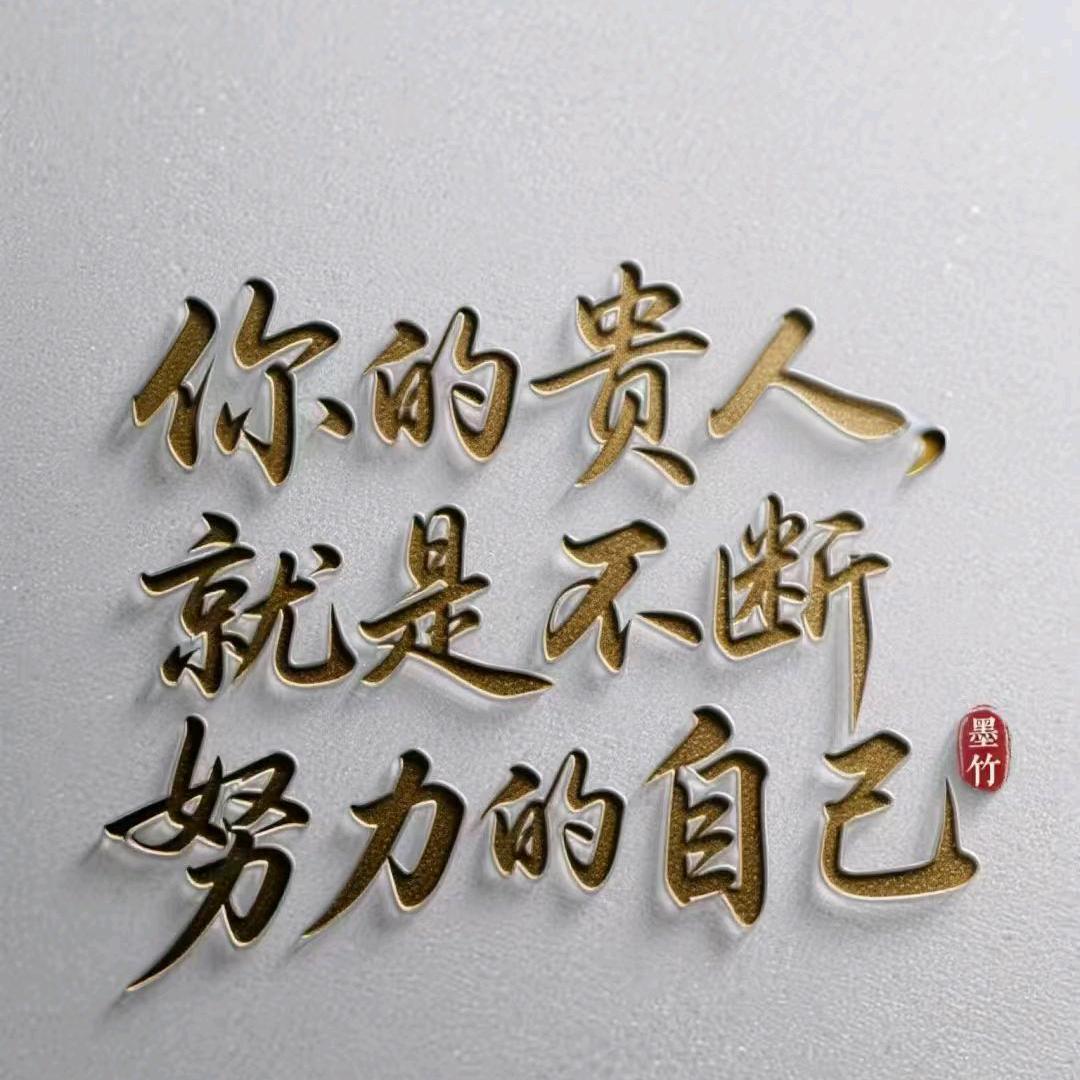 你的贵人，
就是不断
努力的自己
墨竹